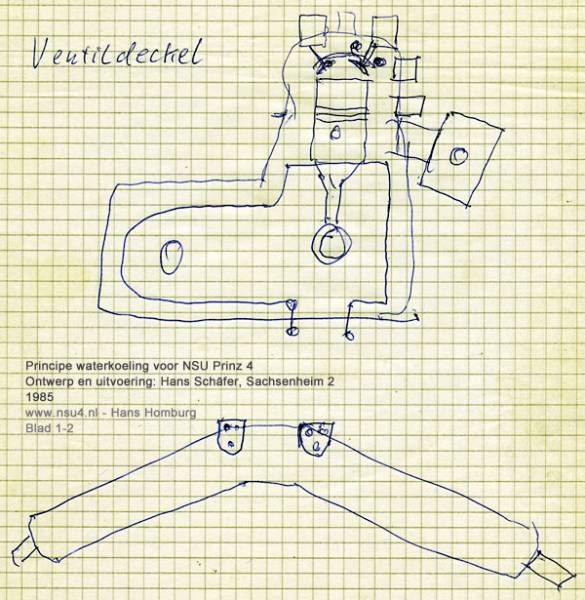 Ventildeckel
Principe waterkoeling voor NSU Prinz 4
Ontwerp en uitvoering: Hans Schäfer, Sachsenheim 2
1985
www.nsu4.nl - Hans Homburg
Blad 1-2